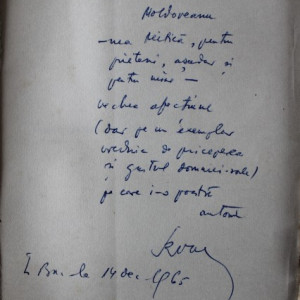 Moldoveanu
—nea Mitică, pentru
prieteni, așadar și
pentru mine —
vechea afecțiune
(dar pe un exemplar
vrednic de priceperea
și gustul domniei-sale)
pe care i-o poartă
autorul
în Buc. la 14 dec. 1965